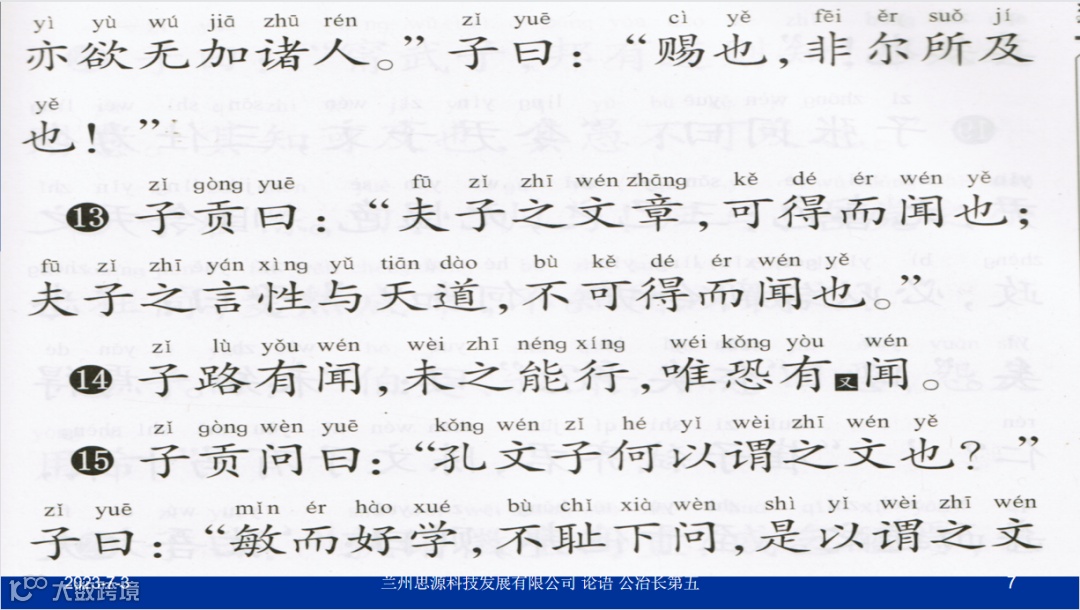 yì yù wú jiā zhū rén zǐ yuē cì yě fēi ěr suǒ jí
亦欲无加诸人。”子曰：“赐也，非尔所及
yě
也！”
zǐ gòng yuē fū zǐ zhī wén zhāng kě dé ér wén yě
13 子贡曰：“夫子之文章，可得而闻也，
fū zǐ zhī yán xìng yǔ tiān dào bù kě dé ér wén yě
夫子之言性与天道，不可得而闻也。”
zǐ lù yǒu wén wèi zhī néng xíng wéi kǒng yòu wén
14 子路有闻，未之能行，唯恐有又闻。
zǐ gòng wèn yuē kǒng wén zǐ hé yǐ wèi zhī wén yě
15 子贡问曰：“孔文子何以谓之文也？”
zǐ yuē mǐn ér hào xué bù chǐ xià wèn shì yǐ wèi zhī wén
子曰：“敏而好学，不耻下问，是以谓之文
2023-7-3 兰州思源科技发展有限公司 论语 公冶长第五 7
大数跨境